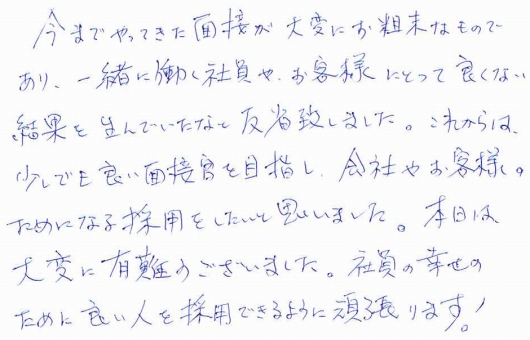 今までやってきた面接が大変にお粗末なもので
あり、一緒に働く社員や、お客様にとって良くない
結果を生んでいたなと反省致しました。これからは、
少しでも良い面接官を目指し、会社やお客様の
ためになる採用をしたいと思いました。本日は
大変に有難うございました。社員の幸せの
ために良い人を採用できるように頑張ります!